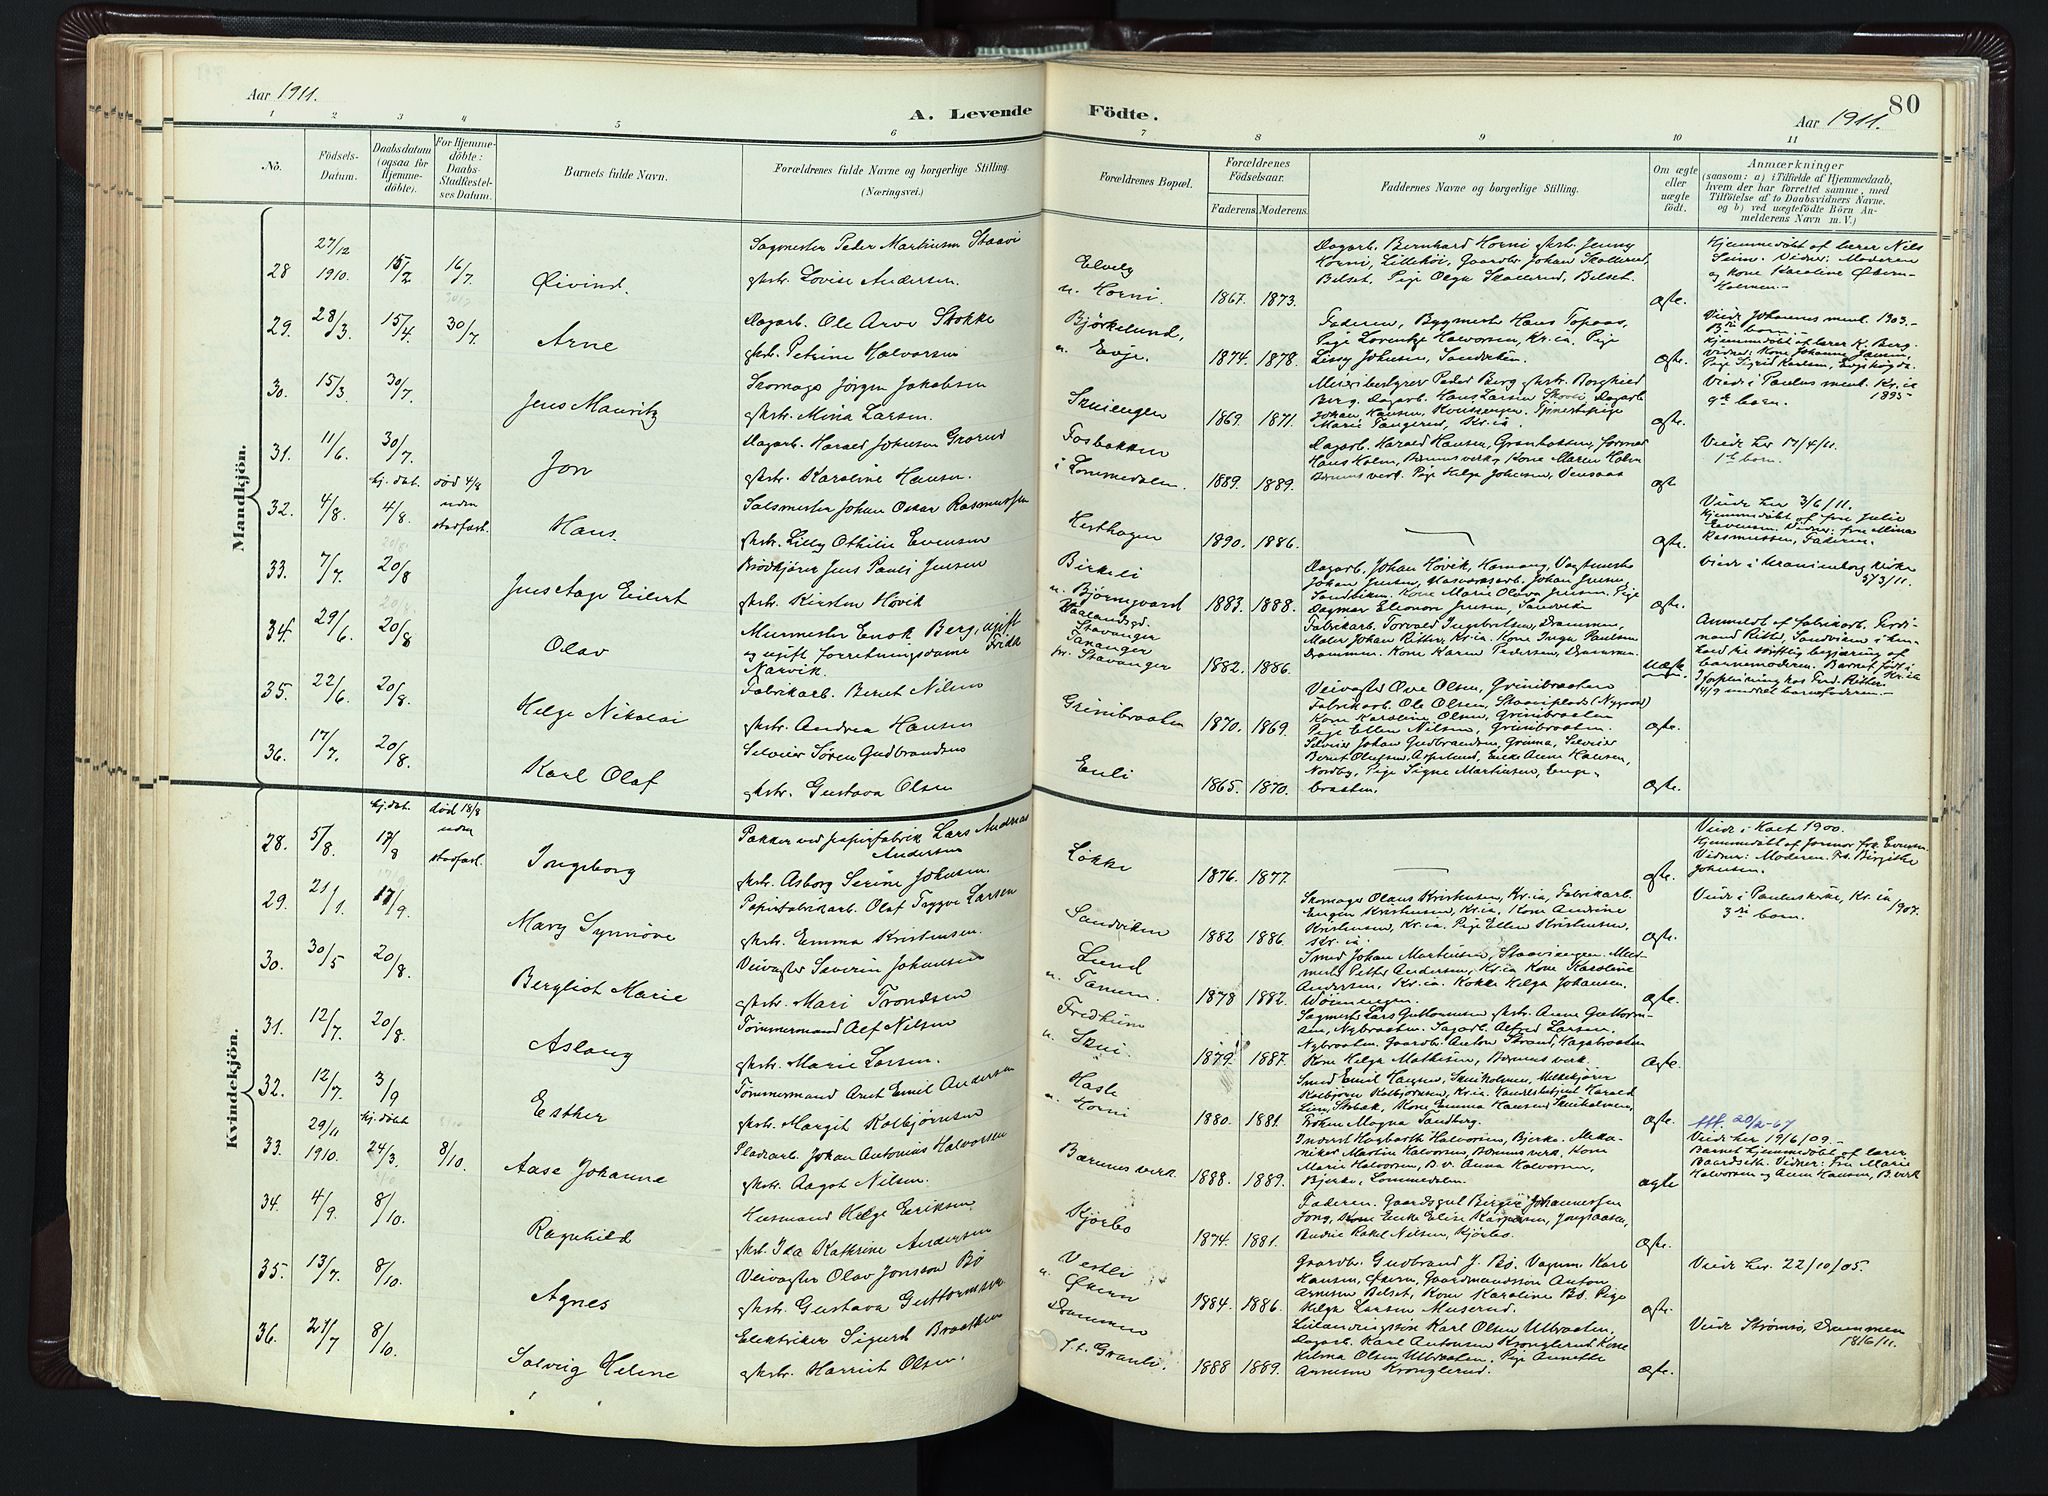 Aar 1911.
A. Levende
Födte.
Aar 1911.
80
1 2 3 4 5 6 7 8 9 10 11
No.
Födsels-
Datum.
Daabsdatum
(ogsaa for
Hjemme-
döbte).
For Hjemme-
döbte:
Daabs-
Stadfæstel-
ses Datum.
Barnets fulde Navn.
Forældrenes fulde Navne og borgerlige Stilling.
(Næringsvei.)
Forældrenes Bopæl.
Forældrenes
Födselsaar.
Faderens. Moderens.
Faddernes Navne og borgerlige Stilling.
Om ægte
eller
uægte
födt.
Anmærkninger
(saasom: a) i Tilfælde af Hjemmedaab,
hvem der har forrettet samme, med
Tilföielse af to Daabsvidners Navne.
og b) ved uægtefödte Börn An-
melderens Navn m. V.)
Mandkjön.
28
27/12
1910.
15/2
16/7
Øivind.
Sagmester Peder Martinsen Staavi
Lovise Andersen.
Elvely
u. Horni.
1867. 1873.
Dagarb. Bernhard Horni Jenny
Horni, Gaardbr. Johan
Belset, Pige Olga Belset.
ægte.
Hjemmedöbt af lærer Nils
Vidner: Moderen
og kone Karoline
29.
28/3
15/4
30/7
Arne
Dagarb. Ole Arve Stokke
Petrine Halvorsen
Björkelund,
u. Evje.
1874. 1878.
Faderen, Bygmester Hans Topaas,
Pige Lorentze Halvorsen, Kr.ia. Pige
Lissy Johnsen, Sandviken.
ægte.
Viede Johannes men. 1903.-
barn.
hjemmedöbt af lærer K. Berg.
Vidner: Kone Johanne Jansen,
Pige Sigrid Karlsen,
30.
15/3
30/7
Jens Mauritz
Skomager Jörgen Jakobsen
Mina Larsen.
Skuiengen
1869. 1871.
Meieribestyrer Peder Berg Borghild
Berg. Dagarb. Hans Larsen Dagarb.
Johan Hansen,
Marie Tangerud, Kr.ia.
ægte.
Viede i Paulus men. Kr.ia
1895
9de barn.
31.
11/6.
30/7.
Jon
Dagarb. Harald Johnsen Grorud
Karoline Hansen.
Fosbakken
i Lommedalen.
1889. 1889.
Dagarb. Harald Hansen, Granbakken,
Hans Holm, Bærums verk, Kone Maren Holm
Bærums verk. Pige Helga Johnsen,
Viede her 17/4/11.
1te barn.
32.
4/8.
hj. döbt.
4/8.
död 4/8
uden
stadfæst.
Hans.
Salsmester Johan Oskar Rasmussen
Lilly Othilie Evensen
Hesthagen
1890. 1886.
ægte.
Viede her 3/6/11.
Hjemmedöbt af fru Julie
Evensen. Vidner: fru Mina
Rasmussen, Faderen.
33.
7/7.
20/8
Jens Aage Eilert
Brödkjörer Jens Pauli Jensen
Kirsten Hövik
Birkeli
u. Björnegaard
1883. 1888.
Dagarb. Johan Hövik, Hamang,
Johan Jensen, Johan Jensen
Sandviken. Kone Marie Olava Jensen. Pige
Dagmar Eleonora Jensen, Sandviken
ægte.
Viede i Uranienborg kirke
5/3/11.
34.
29/6.
20/8
Olav
Murmester Enok Berg, ugift
og ugift forretningsdame
Narvik.
Stavanger
Tananger
pr. Stavanger
1882. 1886.
Fabrikarb. Torvald Ingebretsen, Drammen,
Maler Johan Ritter, Kr.ia. Kone Inga Paulsen
Drammen. Kone Karen Pedersen, Drammen.
uægte.
Anmeldt af fabrikarb. Ferdi-
nand Ritter, Sandviken i hen-
hold til skriftlig begjæring af
barnemoderen. Barnet födt i
Kr.ia
35.
22/6.
20/8.
Helge Nikolai
Fabrikarb. Bernt Nilsen
Andrea Hansen
Grinibraaten
1870. 1869.
Veivogter Ove Olsen, Grinibraaten
Fabrikarb. Ole Olsen, (Nygaard)
Kone Karoline Olsen, Grinibraaten
Pige Ellen Nilsen, Grinibraaten.
ægte.
36.
17/7.
20/8.
Karl Olaf
Selveier Sören Gudbrandsen
Gustava Olsen
Enli
1865. 1870.
Selveier Johan Gudbrandsen, Selveier
Bernt Olufsen, Enke Anne Hansen,
Nordby, Pige Signe Martinsen, Enge-
braaten.
ægte.
Kvindekjön.
28.
5/8.
hj. döbt.
17/8
död 18/8
uden
stadfæst.
Ingeborg
Pakker ved papirfabrik Lars Andreas
Andersen
Asborg Serine Johnsen.
Lökke
1876. 1877.
ægte.
Viede i 1900.
Hjemmedöbt af Jormor fru Evensen.
Vidner: Moderen. Fr. Birgithe
Johnsen.
29.
21/1.
17/9.
Mary Synnöve
Papirfabrikarb. Olaf Trygve Larsen
Emma Kristensen.
Sandviken
1882 1886.
Skomager Olaus Kristensen, Kr.ia, Fabrikarb.
Eugen Kristensen, Kr.ia, Kone Andrine
Kristensen, Kr.ia. Pige Ellen Kristensen,
Kr.ia.
ægte.
Viede i Pauluskirke, Kr.ia
1907.
3die barn.
30.
30/5
20/8.
Bergliot Marie
Veivogter Severin Johansen
Mari Trondsen
Lund
u. Tanum.
1878 1882.
Smed Johan Martinsen, Mur-
mester Petter Andersen, Kr.ia Kone Karoline
Andersen, Kr.ia. Kokke Helga Johansen,
ægte.
31.
12/7.
20/8.
Aslaug
Tömmermand Alf Nilsen
Marie Larsen.
Fredheim
u. Skui.
1879. 1887.
Sagmester Lars Guttormsen Anne Guttorm-
sen, Nybraaten. Sagarb. Alfred Larsen,
Nybraaten. Gaardbr. Anton Strand, Hagabraaten
Kone Helga Mathisen, Bærums verk.
ægte.
32.
12/7.
3/9
Esther
Tömmermand Arnt Emil Andersen
Margit Kolbjörnsen
Hasle
u. Horni
1880. 1881.
Smed Emil Hansen, Skuiholmen, Melkekjörer
Kolbjörn Kolbjörnsen, Kr.ia. Harald
Kone Emma Hansen, Skuiholmen,
Fröken Magna Sandberg.
ægte.
33.
29/11
1910.
hj. döbt
24/3.
8/10.
Aase Johanne
Pladearb. Johan Antonius Halvorsen
Aagot Nilsen.
Bærums verk
1888. 1889.
Halvorsen, Bjerke. Meka-
niker Martin Halvorsen, Bærums verk. Kone
Marie Halvorsen, B.v. Anna Halvorsen,
Bjerke, Lommedalen.
ægte
20/2-67
Viede her 19/6/09.-
Barnet hjemmedöbt af lærer
Baardseth. Vidner: Fru Marie
Halvorsen og Anna Hansen, B.verk
34.
4/9.
8/10.
Ragnhild
Husmand Helge Eriksen
Ida Kathrine Andersen
Kjörbo
1874. 1881.
Faderen. Birgit Johannessen
Jong, Enke Elise Jongsaasen,
Rakel Nilsen, Kjörbo.
ægte.
35.
13/7.
8/10.
Agnes
Veivogter Olav Jonsson Bö
Gustava Guttormsen
Vestli
u. Økern
1884. 1886.
Gaardbr. Gudbrand J. Bö. Karl
Hansen, Økern, Gaardmandssön Anton
Arnesen Belset, Kone Karoline Bö. Pige
Helga Larsen Muserud.
ægte.
Viede her. 22/10/05.
36.
27/7
8/10.
Solveig Helene
Elektriker Sigurd Braathen
Harriet Olsen.
Drammen
1888 1889.
Karl Olsen Ulbraaten,
Dagarb. Karl Antonsen Kronglerud. Kone
Hilma Olsen Ulbraaten, Pige Annette
Arnesen Kronglerud.
ægte.
Viede Strömsö, Drammen
18/6/11.